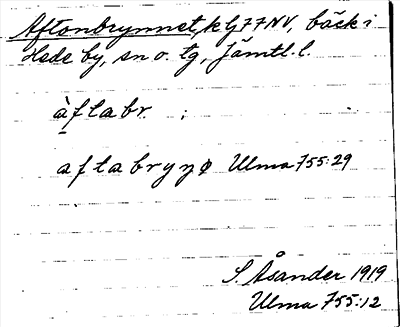 Aftonbrynnet, klj 77 NV, bäck i
Hede by, sn o. tg, Jämtl. l.
àftabr. ;
aftabryṇø Ulma 755:29
S. Åsander 1919
Ulma 755:12